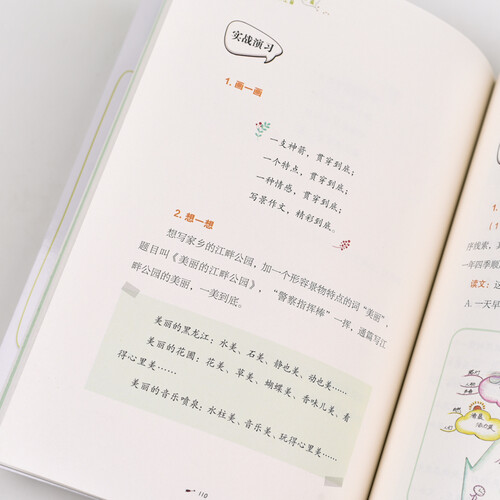 实战演习
1. 画一画
一支神箭，贯穿到底；
一个特点，贯穿到底；
一种情感，贯穿到底；
写景作文，精彩到底。
2. 想一想
想写家乡的江畔公园，加一个形容景物特点的词“美丽”，
题目叫《美丽的江畔公园》，“警察指挥棒”一挥，通篇写江
畔公园的美丽，一美到底。
美丽的黑龙江：水美、石美、静也美、动也美……
美丽的花园：花美、草美、蝴蝶美、香味儿美、看
得心里美……
美丽的音乐喷泉：水柱美、音乐美、玩得心里美……
110
1.
序线索，
一年四季顺
读文：这
A. 一天早